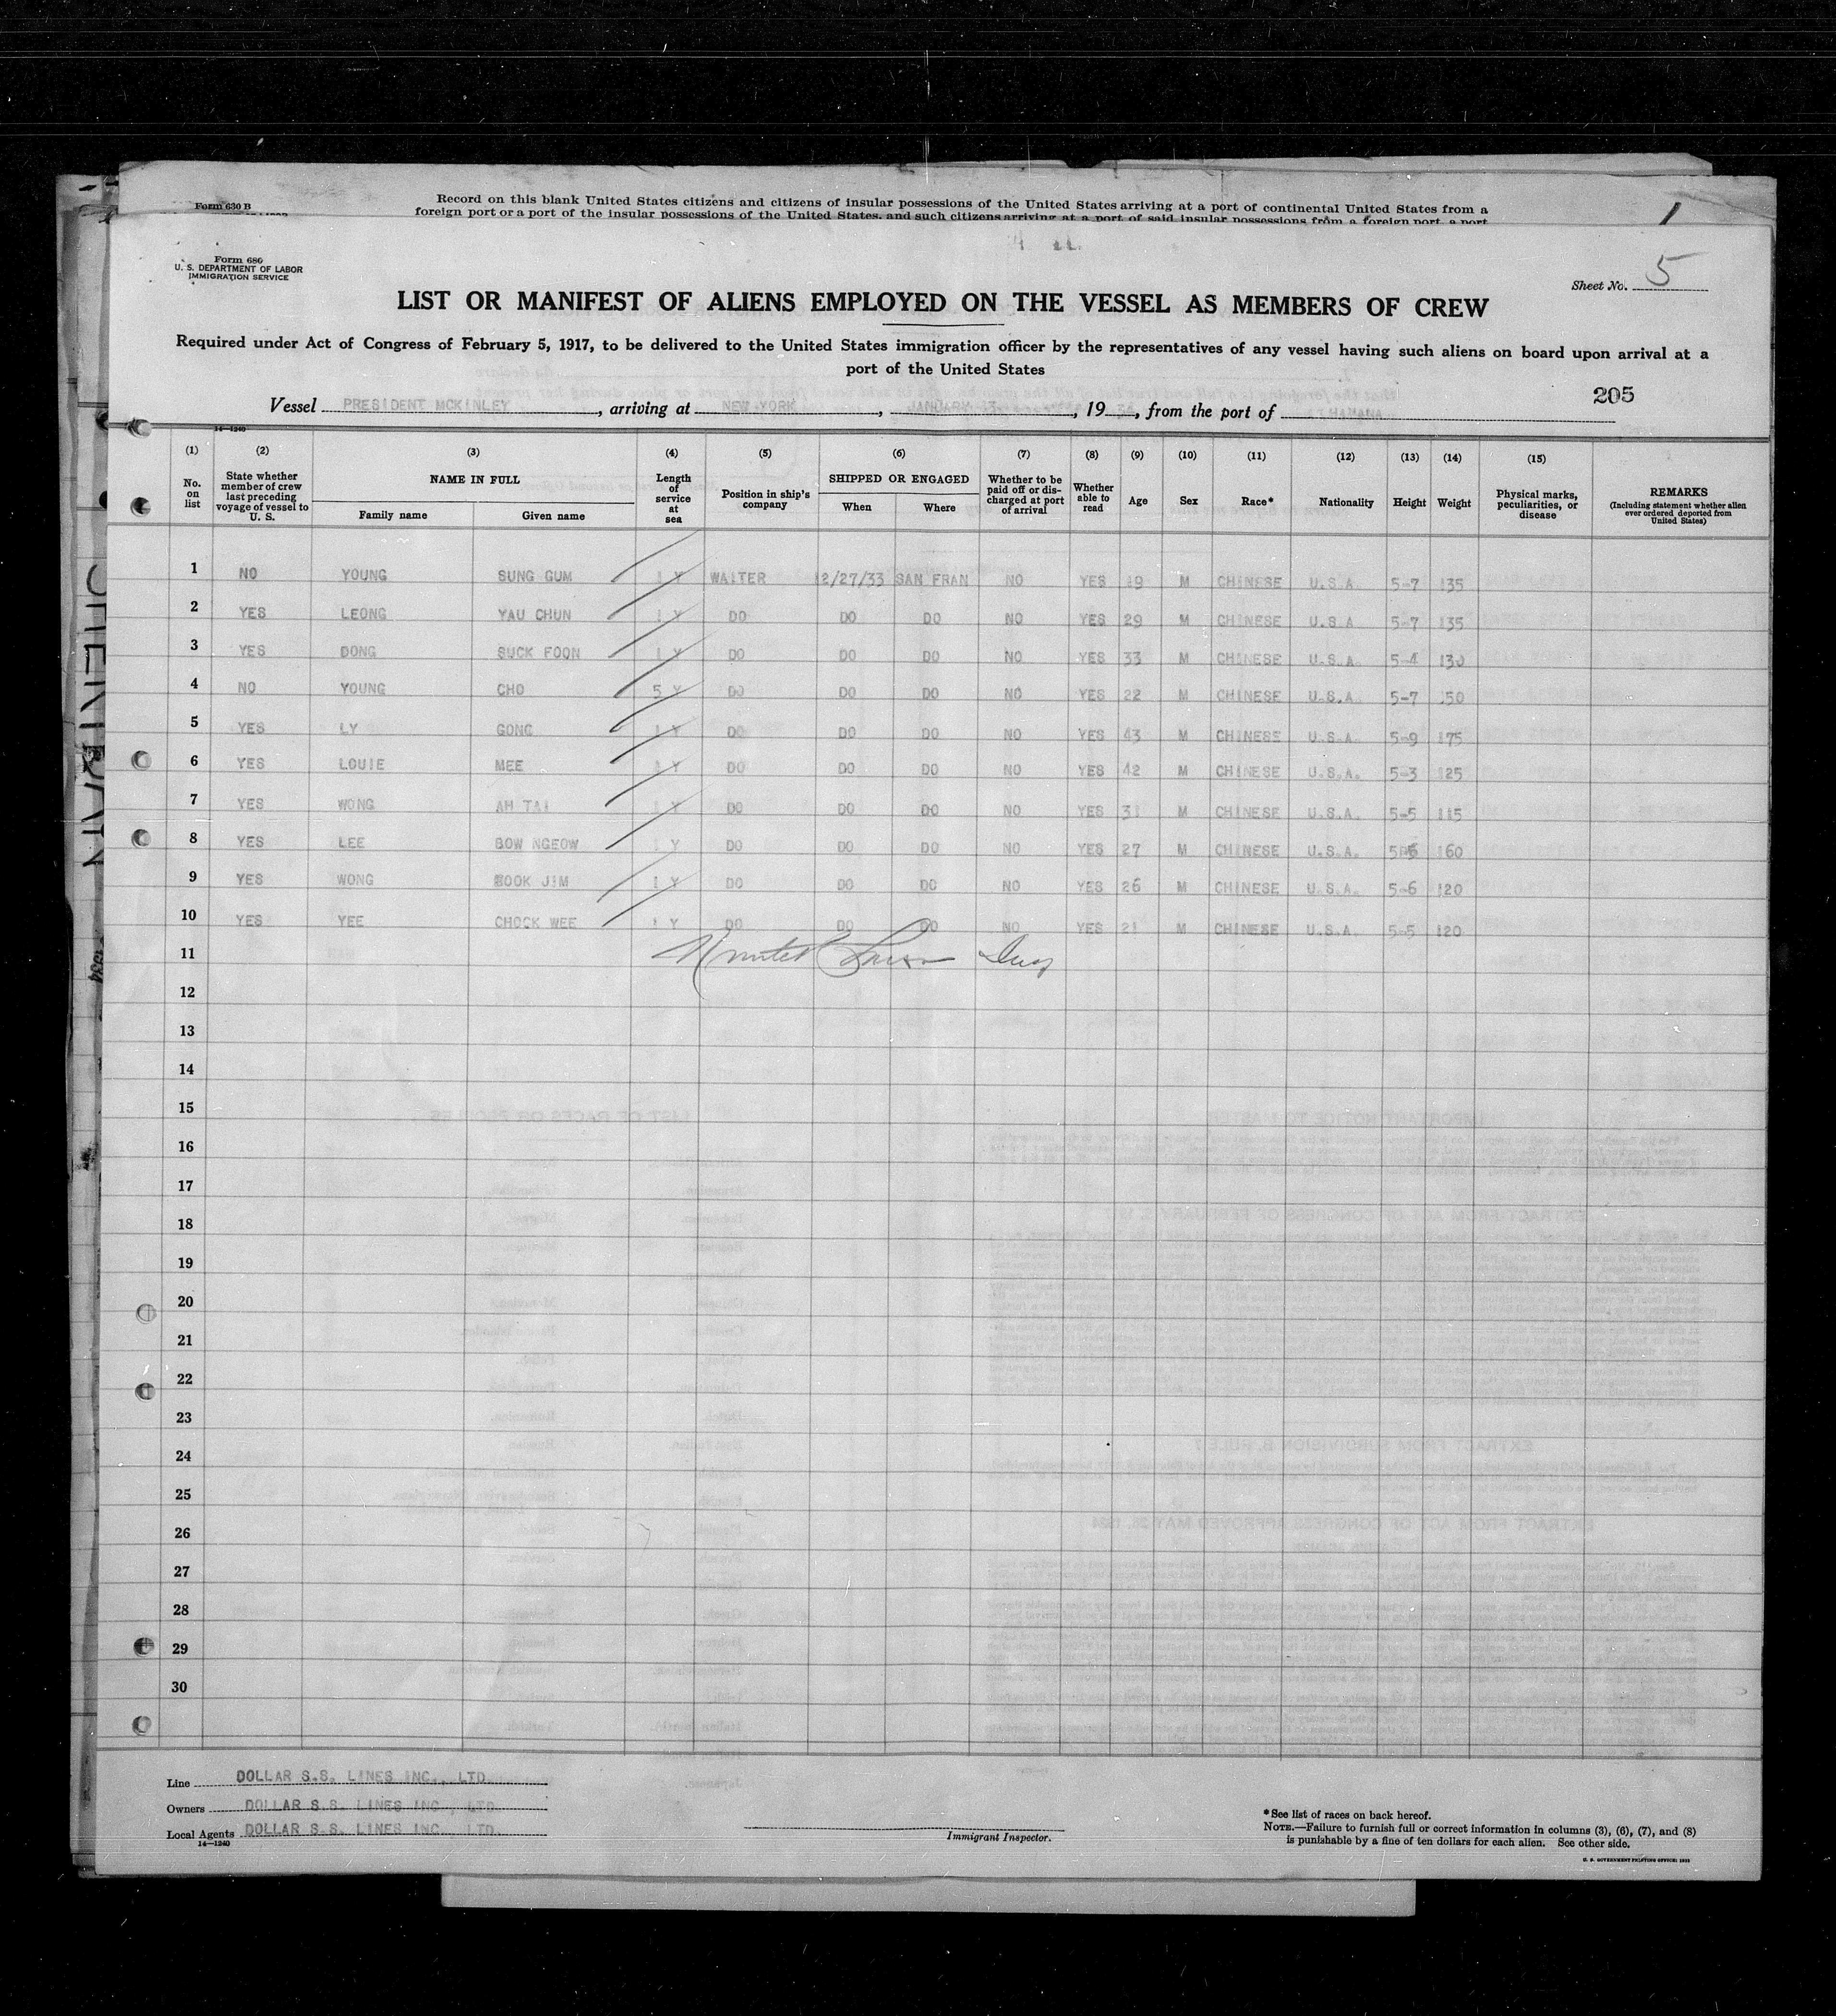 Form 630 B
Record on this blank United States citizens and citizens of insular possessions of the United States arriving at a port of continental United States from a
foreign port or a port of the insular possessions of the United States, and such citizens arriving at a port of said insular possessions from a foreign port, a port
Form 680
U. S. DEPARTMENT OF LABOR
IMMIGRATION SERVICE
Sheet No. 5
LIST OR MANIFEST OF ALIENS EMPLOYED ON THE VESSEL AS MEMBERS OF CREW
Required under Act of Congress of February 5, 1917, to be delivered to the United States immigration officer by the representatives of any vessel having such aliens on board upon arrival at a
port of the United States
205
Vessel PRESIDENT MCKINLEY, arriving at NEW YORK, JANUARY, 19, from the port of HAVANA
14—1240
(1) (2) (3) (4) (5) (6) (7) (8) (9) (10) (11) (12) (13) (14) (15)
No. on list
State whether member of crew last preceding voyage of vessel to U. S.
NAME IN FULL
Family name
Given name
Length of service at sea
Position in ship's company
SHIPPED OR ENGAGED
When
Where
Whether to be paid off or discharged at port of arrival
Whether able to read
Age
Sex
Race*
Nationality
Height
Weight
Physical marks, peculiarities, or disease
REMARKS
(Including statement whether alien ever ordered deported from United States)
1 NO YOUNG SUNG GUM 1 Y WAITER 12/27/33 SAN FRAN NO YES 19 M CHINESE U.S.A. 5-7 135
2 YES LEONG YAU CHUN 1 Y DO DO DO NO YES 29 M CHINESE U.S.A 5-7 135
3 YES DONG SUCK FOON 1 Y DO DO DO NO YES 33 M CHINESE U.S.A. 5-4 130
4 NO YOUNG CHO 5 Y DO DO DO NO YES 22 M CHINESE U.S.A. 5-7 150
5 YES LY GONG 1 Y DO DO DO NO YES 43 M CHINESE U.S.A. 5-9 175
6 YES LOUIE MEE Y DO DO DO NO YES 42 M CHINESE U.S.A. 5-3 125
7 YES WONG AH TAI 1 Y DO DO DO NO YES 31 M CHINESE U.S.A. 5-5 115
8 YES LEE BOW NGEOW 1 Y DO DO DO NO YES 27 M CHINESE U.S.A. 5-6 160
9 YES WONG BOOK JIM 1 Y DO DO DO NO YES 26 M CHINESE U.S.A. 5-6 120
10 YES YEE CHOCK WEE 1 Y DO DO DO NO YES 21 M CHINESE U.S.A. 5-5 120
11
12
13
14
15
16
17
18
19
20
21
22
23
24
25
26
27
28
29
30
Line DOLLAR S.S. LINES INC., LTD.
Owners DOLLAR S.S. LINES INC., LTD.
Local Agents DOLLAR S.S. LINES INC., LTD.
14—1240
Immigrant Inspector.
*See list of races on back hereof.
NOTE.—Failure to furnish full or correct information in columns (3), (6), (7), and (8)
is punishable by a fine of ten dollars for each alien. See other side.
U. S. GOVERNMENT PRINTING OFFICE: 1932